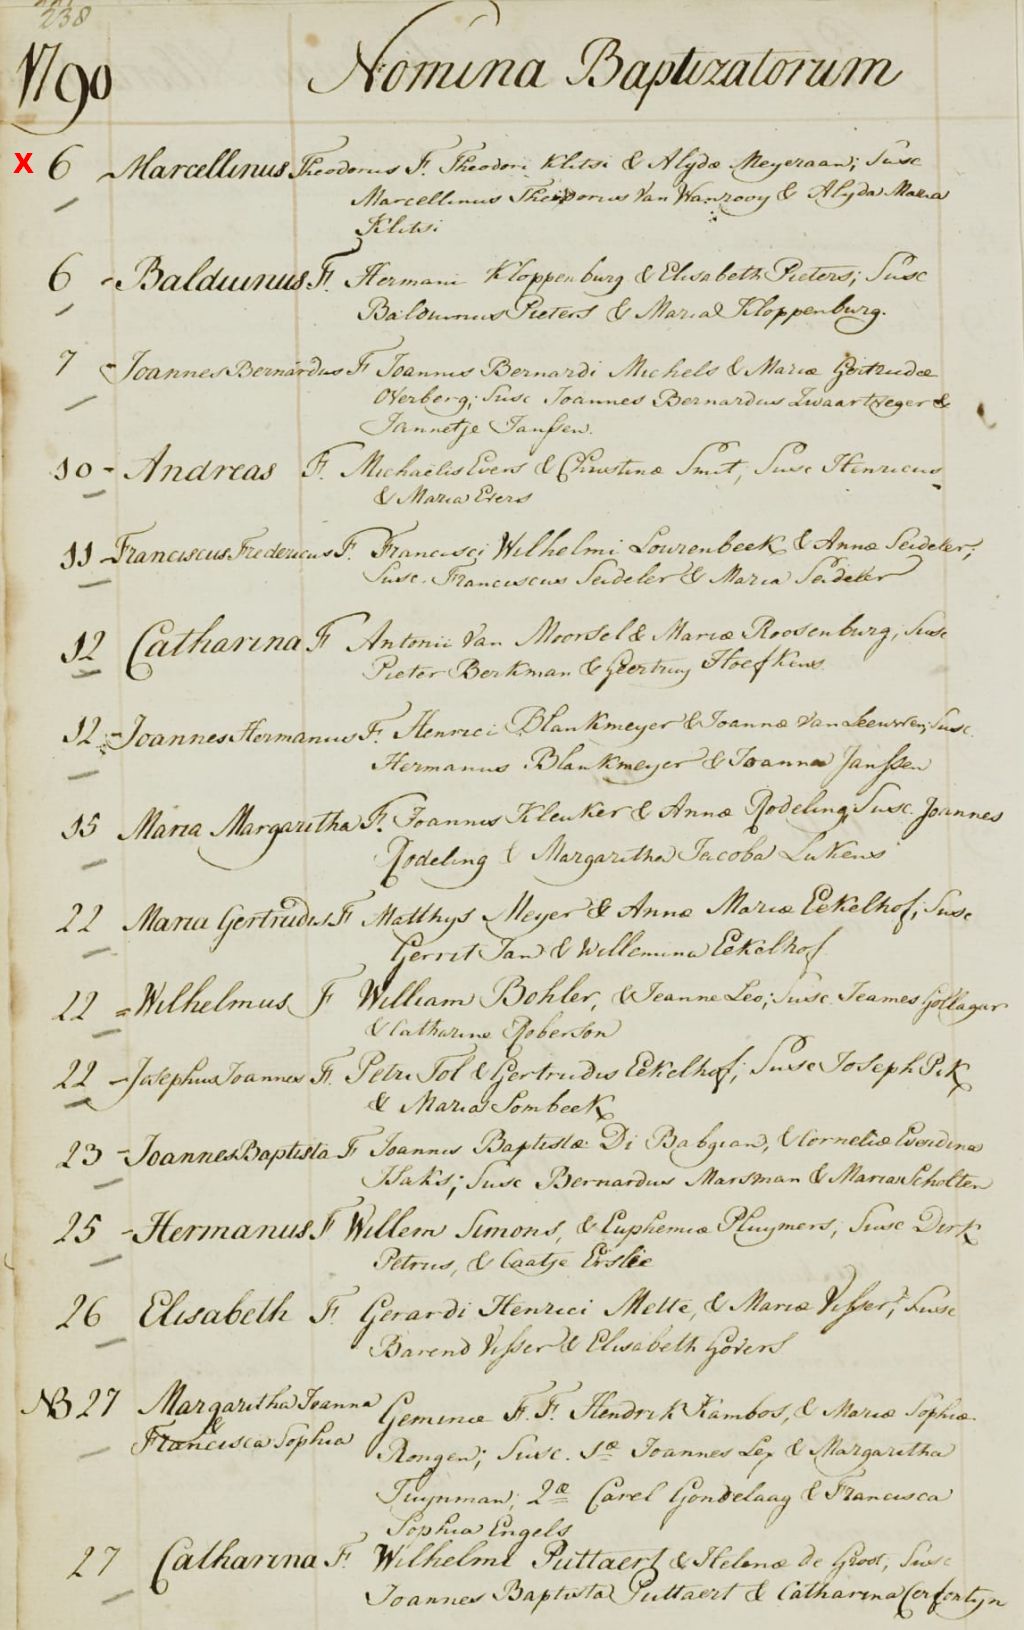 238
1790 Nomina Baptizatorum
X 6 Marcellinus Theodorus F. Theodori Klitsi & Alydæ Meyeraan; Susc
Marcellinus Theodorus Van Wanrooy & Alyda Maria
Klitsi
6 - Balduinus F. Hermani Kloppenburg & Elisabeth Pieters; Susc
Balduinus Pieters & Maria Kloppenburg.
7 - Joannes Bernardus F Joannis Bernardi Michels & Mariæ Gertrudæ
Overberg; Susc Joannes Bernardus Zwaartveger &
Jannetje Janssen.
10 - Andreas F. Michaelis Evers & Christinæ Smit; Susc Henricus
& Maria Evers
11 - Franciscus Fredericus F. Francisci Wilhelmi Lourenbeek & Annæ Seideler;
Susc. Franciscus Seideler & Maria Seideler
12 Catharina F Antonii Van Moorsel & Mariæ Roosenburg; Susc
Pieter Berkman & Geertruy Hoefkens
12 - Joannes Hermanus F. Henrici Blankmeyer & Joannæ Van Leeuwen; Susc.
Hermanus Blankmeyer & Joanna Janssen
15 Maria Margaritha F. Joannis Kleuker & Annæ Rodeling Susc. Joannes
Rodeling & Margaritha Jacoba Lukens
22 Maria Gertrudis F Matthys Meyer & Annæ Mariæ Eekelhof; Susc
Gerrit Jan & Willemina Eekelhof
22 = Wilhelmus F William Bohler, & Jeanne Leo; Susc. Jeames Gollagar
& Catharine Roberson
22 - Josephus Joannes F. Petri Tol & Gertrudis Eekelhof; Susc Joseph Pik
& Maria Sombeek
23 - Joannes Baptista F Joannis Baptistæ Di Babgian, & Corneliæ Everdina
Isaks; Susc Bernardus Marsman & Maria Scholten
25 - Hermanus F Willem Simons, & Euphemiæ Pluymers, Susc Dirk
Petrus, & Caatje Erslie
26 Elisabeth F. Gerardi Henrici Mette, & Mariæ Visser; Susc
Barend Visser & Elisabeth Govers
NB 27 Margaritha Joanna Geminæ F. F. Hendrik Kambos, & Mariæ Sophiæ
& Francisca Sophia Rongen; Susc. 1æ Joannes Lex & Margaritha
Tuynman; 2æ Carel Gondelaag & Francisca
Sophia Engels
27 Catharina F. Wilhelmi Puttaert & Helenæ de Groot, Susc
Joannes Baptista Puttaert & Catharina Cerfontyn